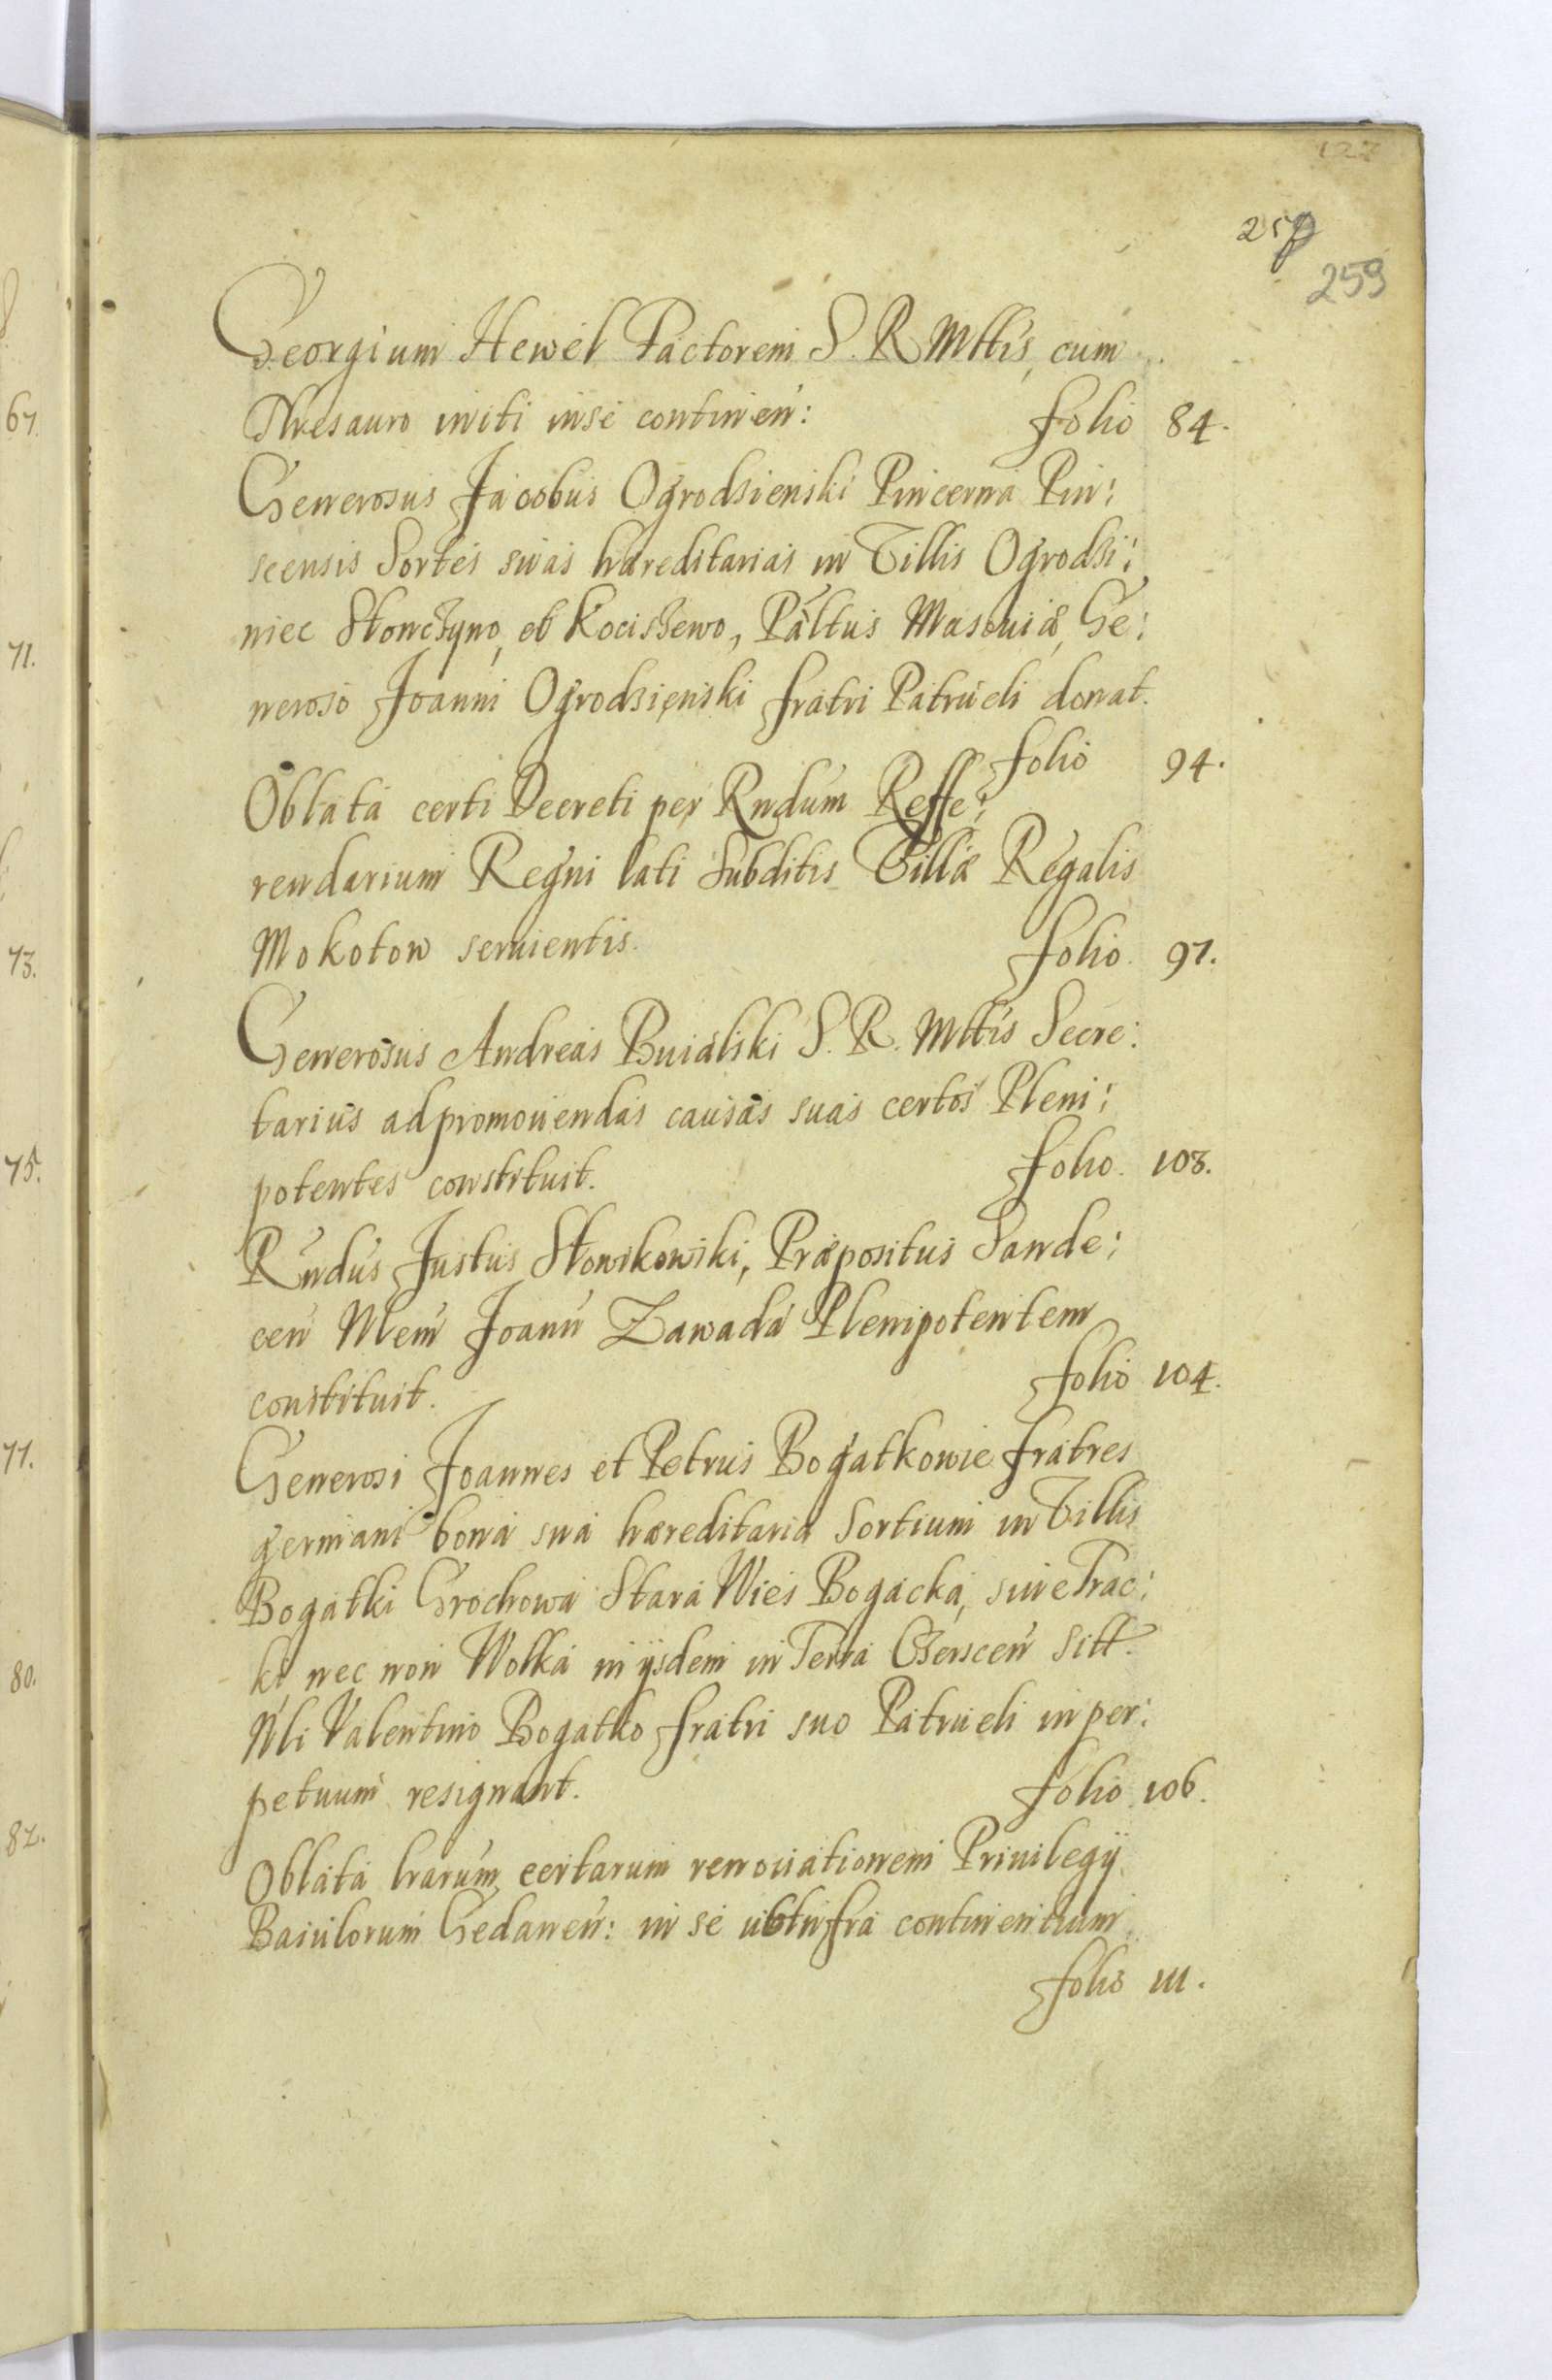 127
257
259
Georgium Hewel Factorem S. R. Mttis, cum
Thesauro initi in se continen: folio 84.
Generosus Jacobus Ogrodzienski Pincerna Pin:
scensis Sortes suas hæreditarias in Villis Ogrodzi:
niec Słonczyno, et Kociszewo, Pałtus Masouiæ, Ge:
neroso Joanni Ogrodzienski fratri Patrueli donat.
folio 94.
Oblata certi Decreti per Rndum Reffe:
rendarium Regni lati Subditis Villæ Regalis
Mokotow seruientis. folio. 97.
Generosus Andreas Buialski S. R. Mttis Secre:
tarius ad promouendas causas suas certos Pleni:
potentes constituit. folio. 103.
Rndus Justus Słowikowski, Præpositus Sande:
cen Nlem Joann Zawada Plenipotentem
constituit. folio 104.
Generosi Joannes et Petrus Bogatkowie fratres
germani bona sua hæreditaria Sortium in Villis
Bogatki Grochowa Stara Wies Bogacka, siue Trac:
ki nec non Wolka in ijsdem in Terra Czerscen sitt.
Nli Valentino Bogatko fratri suo Patrueli in per:
petuum resignant. folio 106.
Oblata lrarum, certarum renouationem Priuilegij
Baiulorum Gedanen: in se ubtinfra continentium
folio 111.
67.
71.
73.
75.
77.
80.
82.